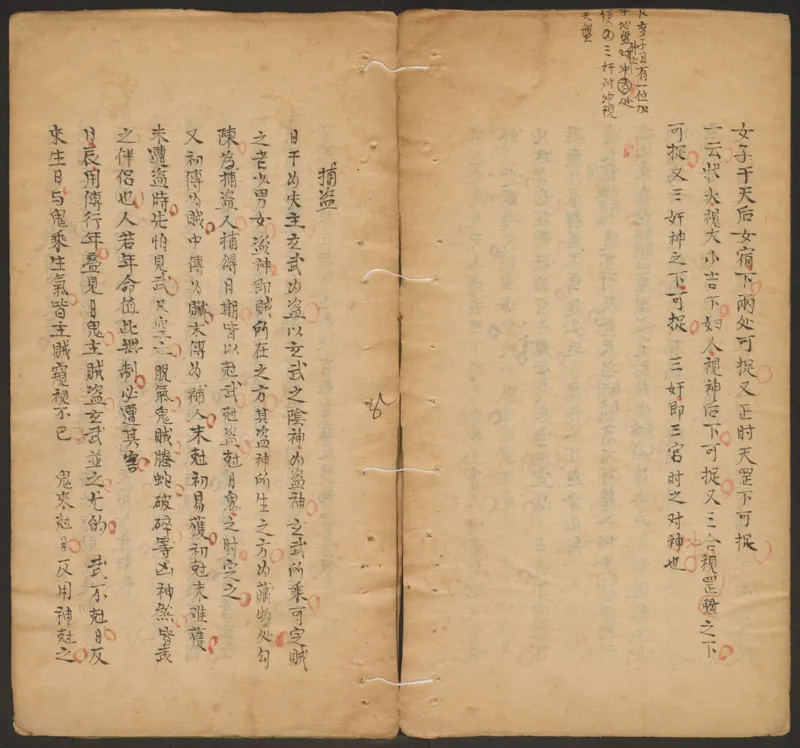 亥子丑有一位加
地盤对冲者处
便为三奸对冲視
天盤
女子于天后女宿下兩处可捉又正时天罡下可捉
一云状夫視大小吉下妇人視神后下可捉又三合視罡魁之下
可捉又三奸神之下可捉 三奸即三宫时之对神也
捕盜
日干为失主玄武为盜以玄武之陰神为盜神玄武所乘可定賊
之老少男女盜神即賊所在之方其盜神所生之方为藏物处勾
陳為捕盜人捕得日期皆以尅武尅盜尅日鬼之时定之
又初傳为賊中傳为贓末傳为捕人末尅初易獲初尅末难獲
未遭盜時先怕見武只空亡脫氣鬼賊螣蛇破碎等凶神煞皆武
之伴侶也人若年命值此無制必遭其害
日辰用傳行年叠見日鬼主賊盜玄武並之尤的 武不尅日反
來生日与鬼乘生氣皆主賊窺視不已 鬼來尅日反用神尅之